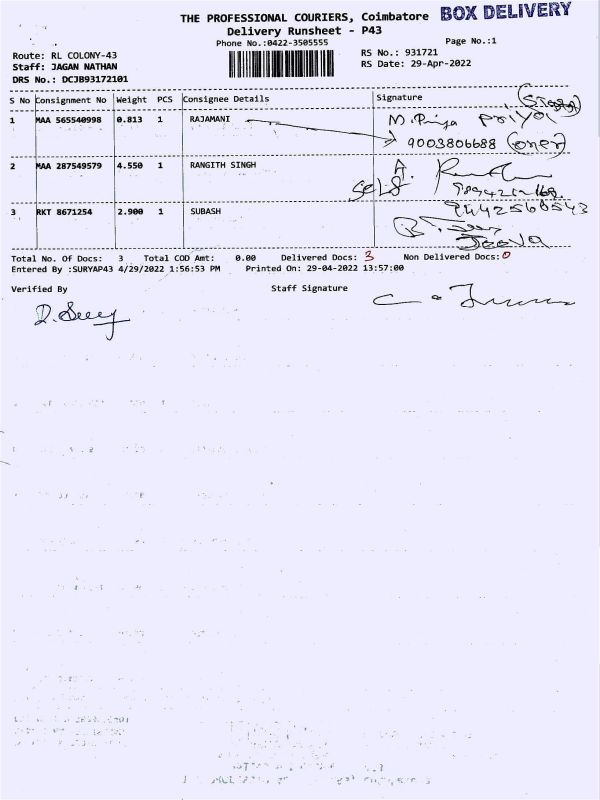 THE PROFESSIONAL COURIERS, Coimbatore BOX DELIVERY
Delivery Runsheet - P43
Phone No.:0422-3505555 Page No.:1
Route: RL COLONY-43 RS No.: 931721
Staff: JAGAN NATHAN RS Date: 29-Apr-2022
DRS No.: DCJB93172101
S No Consignment No Weight PCS Consignee Details Signature
1 MAA 565540998 0.813 1 RAJAMANI M. Priya Priya
9003806688
2 MAA 287549579 4.550 1 RANGITH SINGH
Self
3 RKT 8671254 2.900 1 SUBASH 9442560543
Jeeva
Total No. Of Docs: 3 Total COD Amt: 0.00 Delivered Docs: 3 Non Delivered Docs: 0
Entered By :SURYAP43 4/29/2022 1:56:53 PM Printed On: 29-04-2022 13:57:00
Verified By Staff Signature